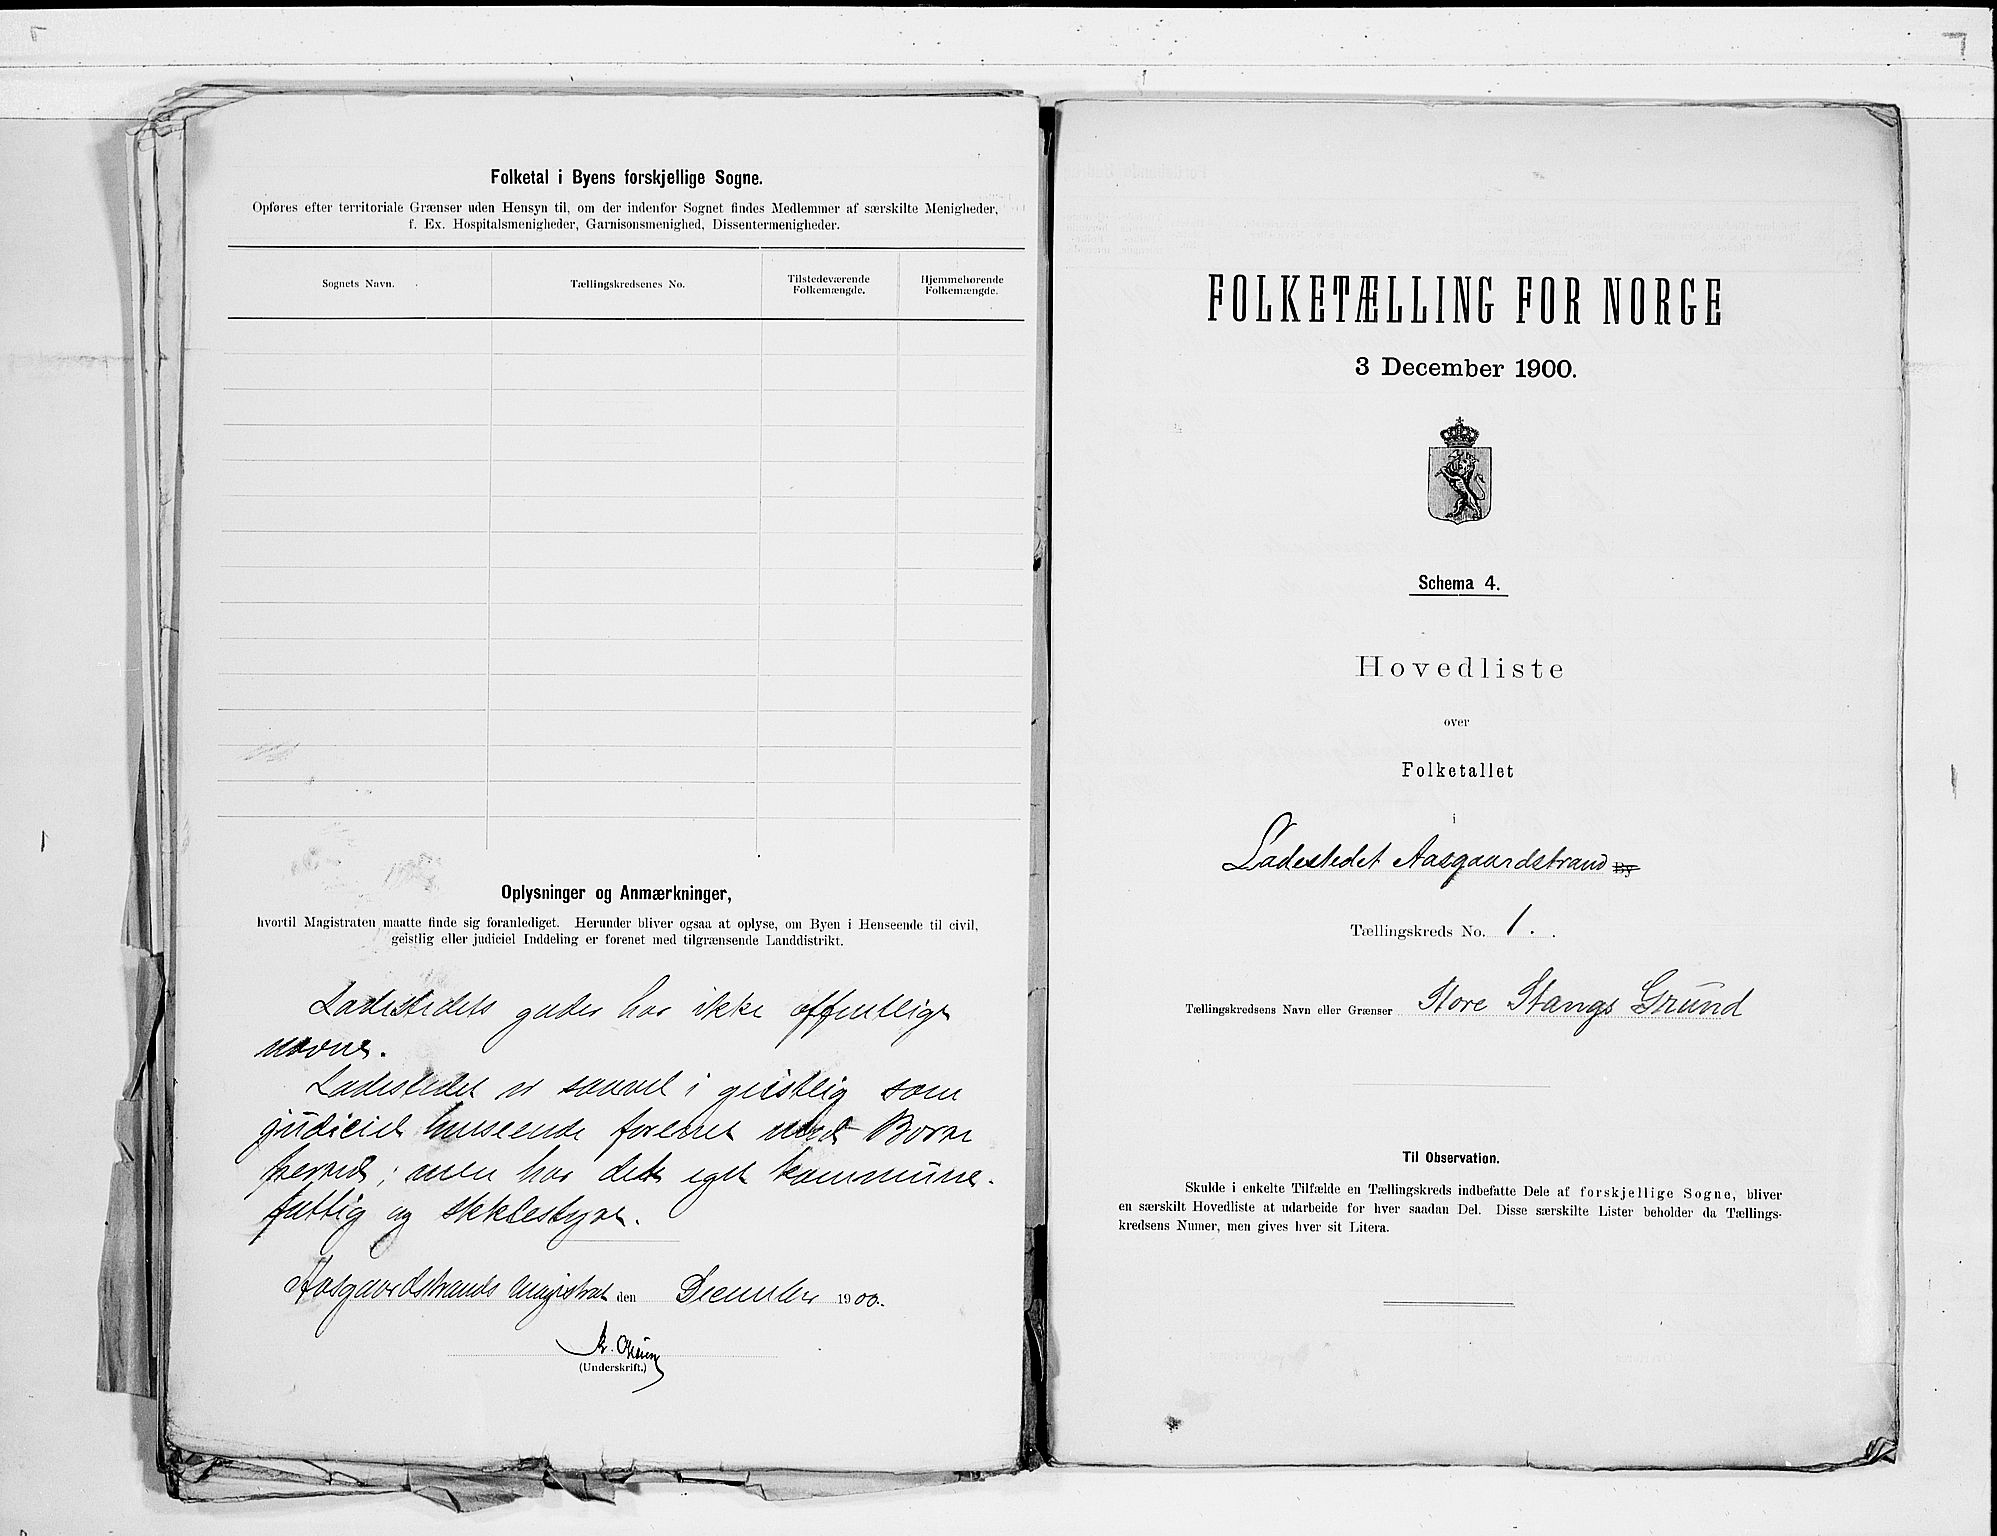 Folketal i Byens forskjellige Sogne.
Opføres efter territoriale Grænser uden Hensyn til, om der indenfor Sognet findes Medlemmer af særskilte Menigheder,
f. Ex. Hospitalsmenigheder, Garnisonsmenighed, Dissentermenigheder.
Sognets Navn. Tællingskredsenes No. Tilstedeværende Folkemængde. Hjemmehørende Folkemængde.
Oplysninger og Anmærkninger,
hvortil Magistraten maatte finde sig foranlediget. Herunder bliver ogsaa at oplyse, om Byen i Henseende til civil,
geistlig eller judiciel Inddeling er forenet med tilgrænsende Landdistrikt.
Ladestedets gader har ikke offentlige
navne.
Ladestedet er saavel i geistlig som
judiciel henseende forenet med Borre
herred; men har dets eget kommune-
fattig og
Aasgaardstrands Magistrat den December 1900.
(Underskrift.)
FOLKETÆLLING FOR NORGE
3 December 1900.
Schema 4.
Hovedliste
over
Folketallet
i
Ladestedet Aasgaardstrand By
Tællingskreds No. 1.
Tællingskredsens Navn eller Grænser Store Stangs Grund
Til Observation.
Skulde i enkelte Tilfælde en Tællingskreds indbefatte Dele af forskjellige Sogne, bliver
en særskilt Hovedliste at udarbeide for hver saadan Del. Disse særskilte Lister beholder da Tællings-
kredsens Numer, men gives hver sit Litera.